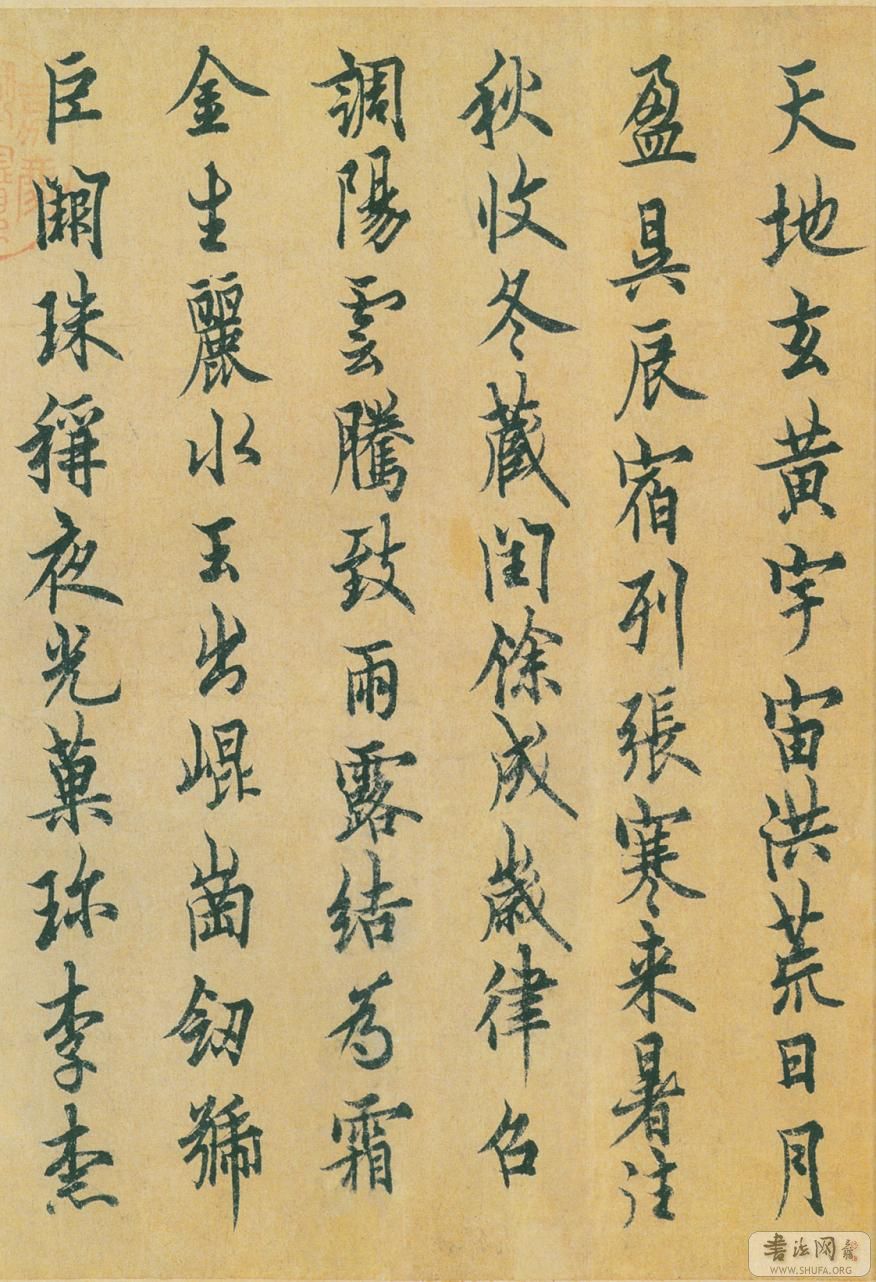 天地玄黃宇宙洪荒日月
盈昃辰宿列張寒来暑往
秋收冬蔵閏餘成歲律召
調陽雲騰致雨露結為霜
金生麗水玉出崐崗劒號
巨闕珠稱夜光菓珎李柰
書法网
WWW.SHUFA.ORG